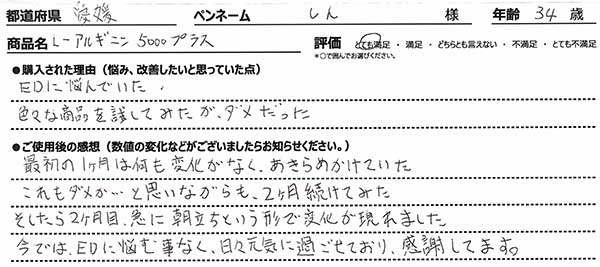 都道府県 愛媛 ペンネーム しん 様 年齢 34 歳
商品名 L-アルギニン 5000プラス 評価 とても満足 ・ 満足 ・ どちらとも言えない ・ 不満足 ・ とても不満足
*○で囲んでお選びください。
●購入された理由（悩み、改善したいと思っていた点）
EDに悩んでいた。
色々な商品を試してみたが、ダメだった
●ご使用後の感想（数値の変化などがございましたらお知らせください。）
最初の1ヶ月は何も変化がなく、あきらめかけていた
これもダメか…と思いながらも、2ヶ月続けてみた
そしたら2ヶ月目、急に朝立ちという形で変化が現れました
今では、EDに悩む事なく、日々元気に過ごせており、感謝してます。